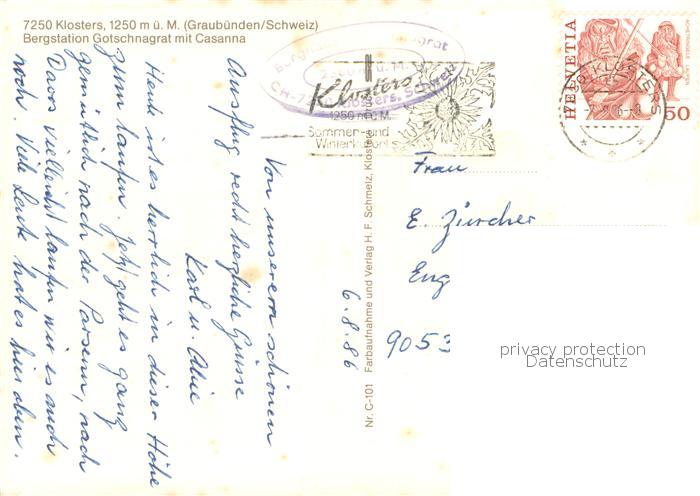 7250 Klosters, 1250 m ü. M. (Graubünden/Schweiz)
Bergstation Gotschnagrat mit Casanna
Klosters
1250 m ü. M.
Sommer- und
Winterkurort
HELVETIA
50
Von unserem schönen
Ausflug recht herzliche Grüsse
Karl u.
Heute ist es herrlich in dieser Höhe
zum laufen. Jetzt geht es ganz
gemütlich nach der Parsenn, nach
Davos vielleicht laufen wir es auch
noch. Viele Leute hat es hier oben.
6.8.86
Nr. C-101 Farbaufnahme und Verlag H. F. Schmelz, Klosters
Frau
E. Zürcher
Eng
9053
privacy protection
Datenschutz